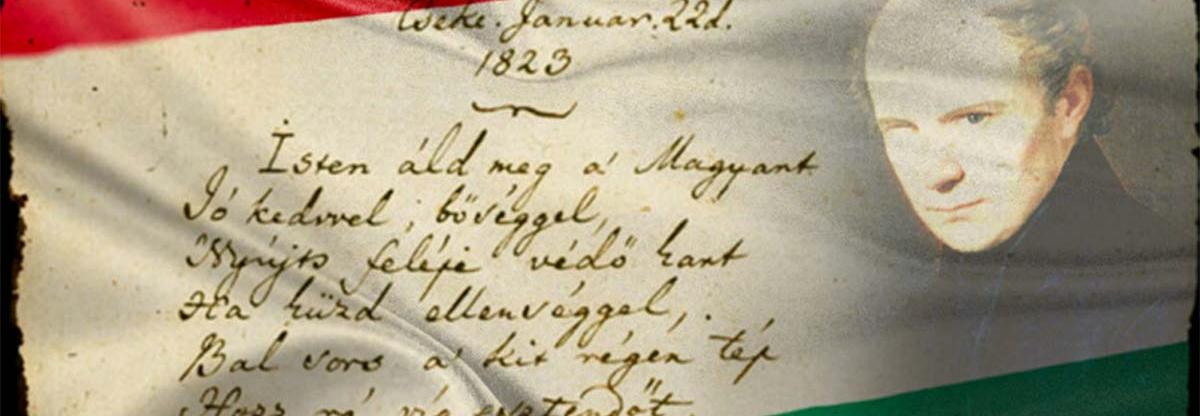 Cseke. Januar. 22d.
1823
Isten áld meg a' Magyart
Jó kedvvel, bőséggel,
Nyújts feléje védő kart
Ha küzd ellenséggel,
Bal sors a' kit régen tép
Hozz rá víg esztendőt,